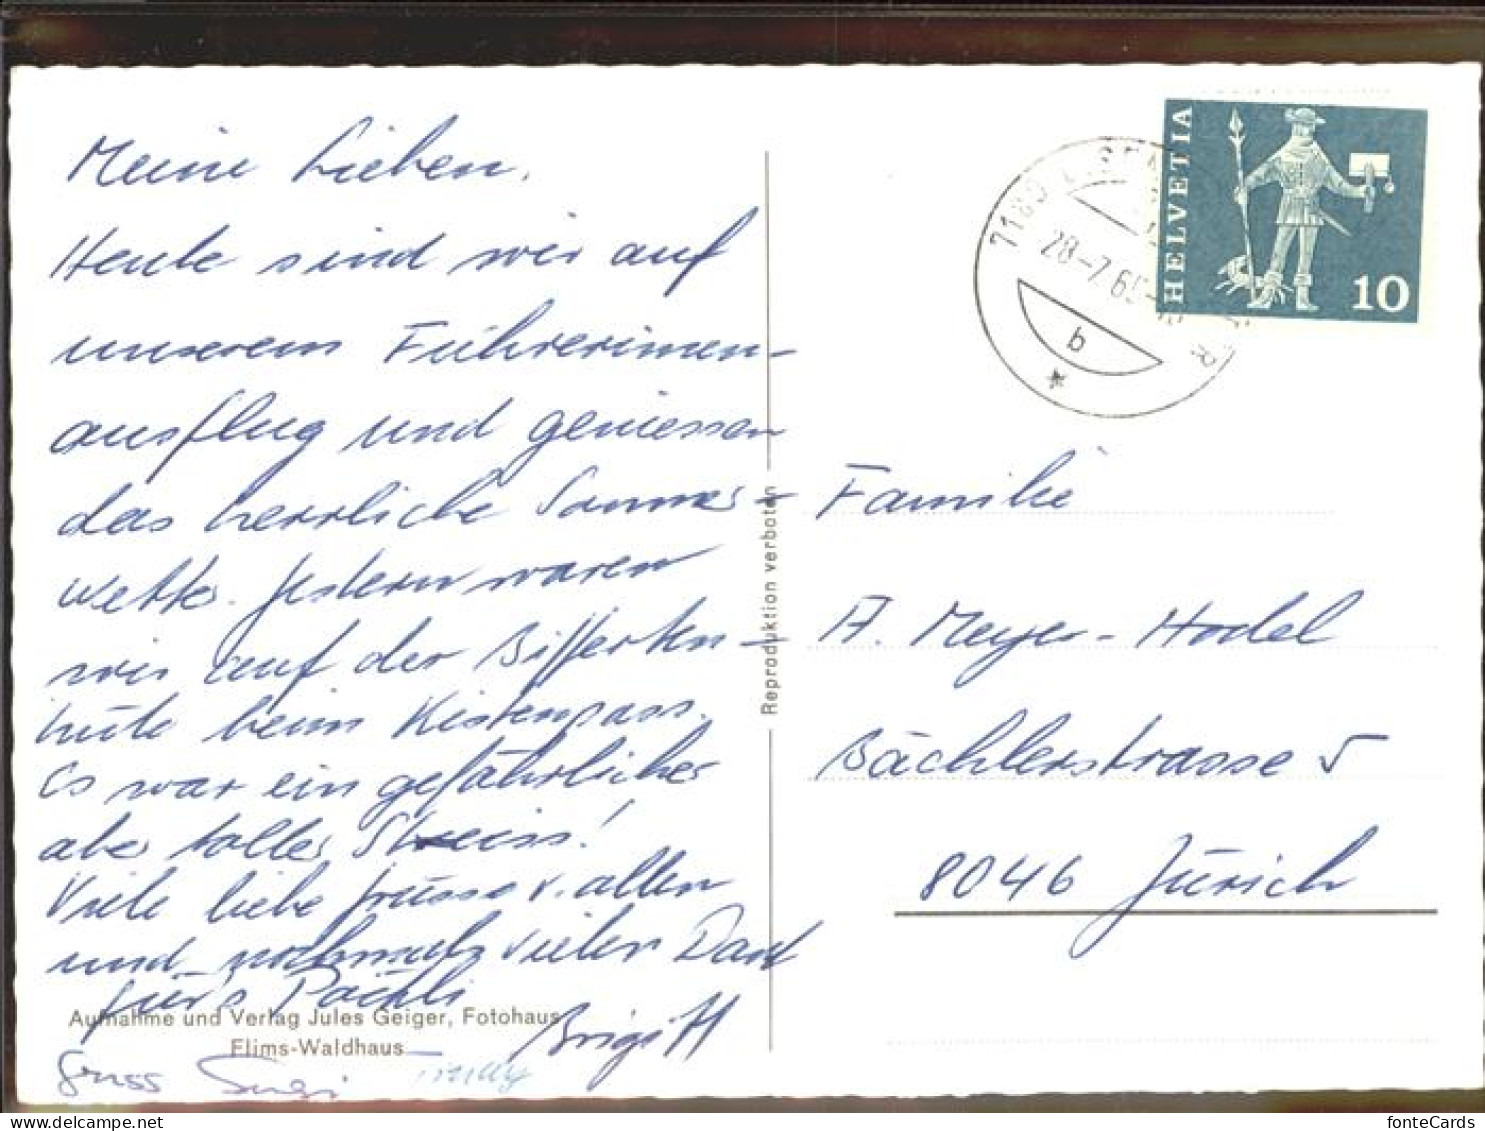 Meine Lieben,
Heute sind wir auf
unserem Führerinnen-
ausflug und geniessen
das herrliche Sommer-
wetter. Gestern waren
wir auf der Bifferten-
hütte beim Kistenpass.
Es war ein gefährlicher
aber toller Streiss!
Viele liebe Grüsse v. allen
und nochmals vielen Dank
für's Päckli
Brigitt
Gruss Susi Trudy
Aufnahme und Verlag Jules Geiger, Fotohaus
Flims-Waldhaus
Reproduktion verboten
HELVETIA
10
28-7.65
b
Familie
A. Meyer-Hodel
Bächlerstrasse 5
8046 Zürich
fonteCards
www.delcampe.net